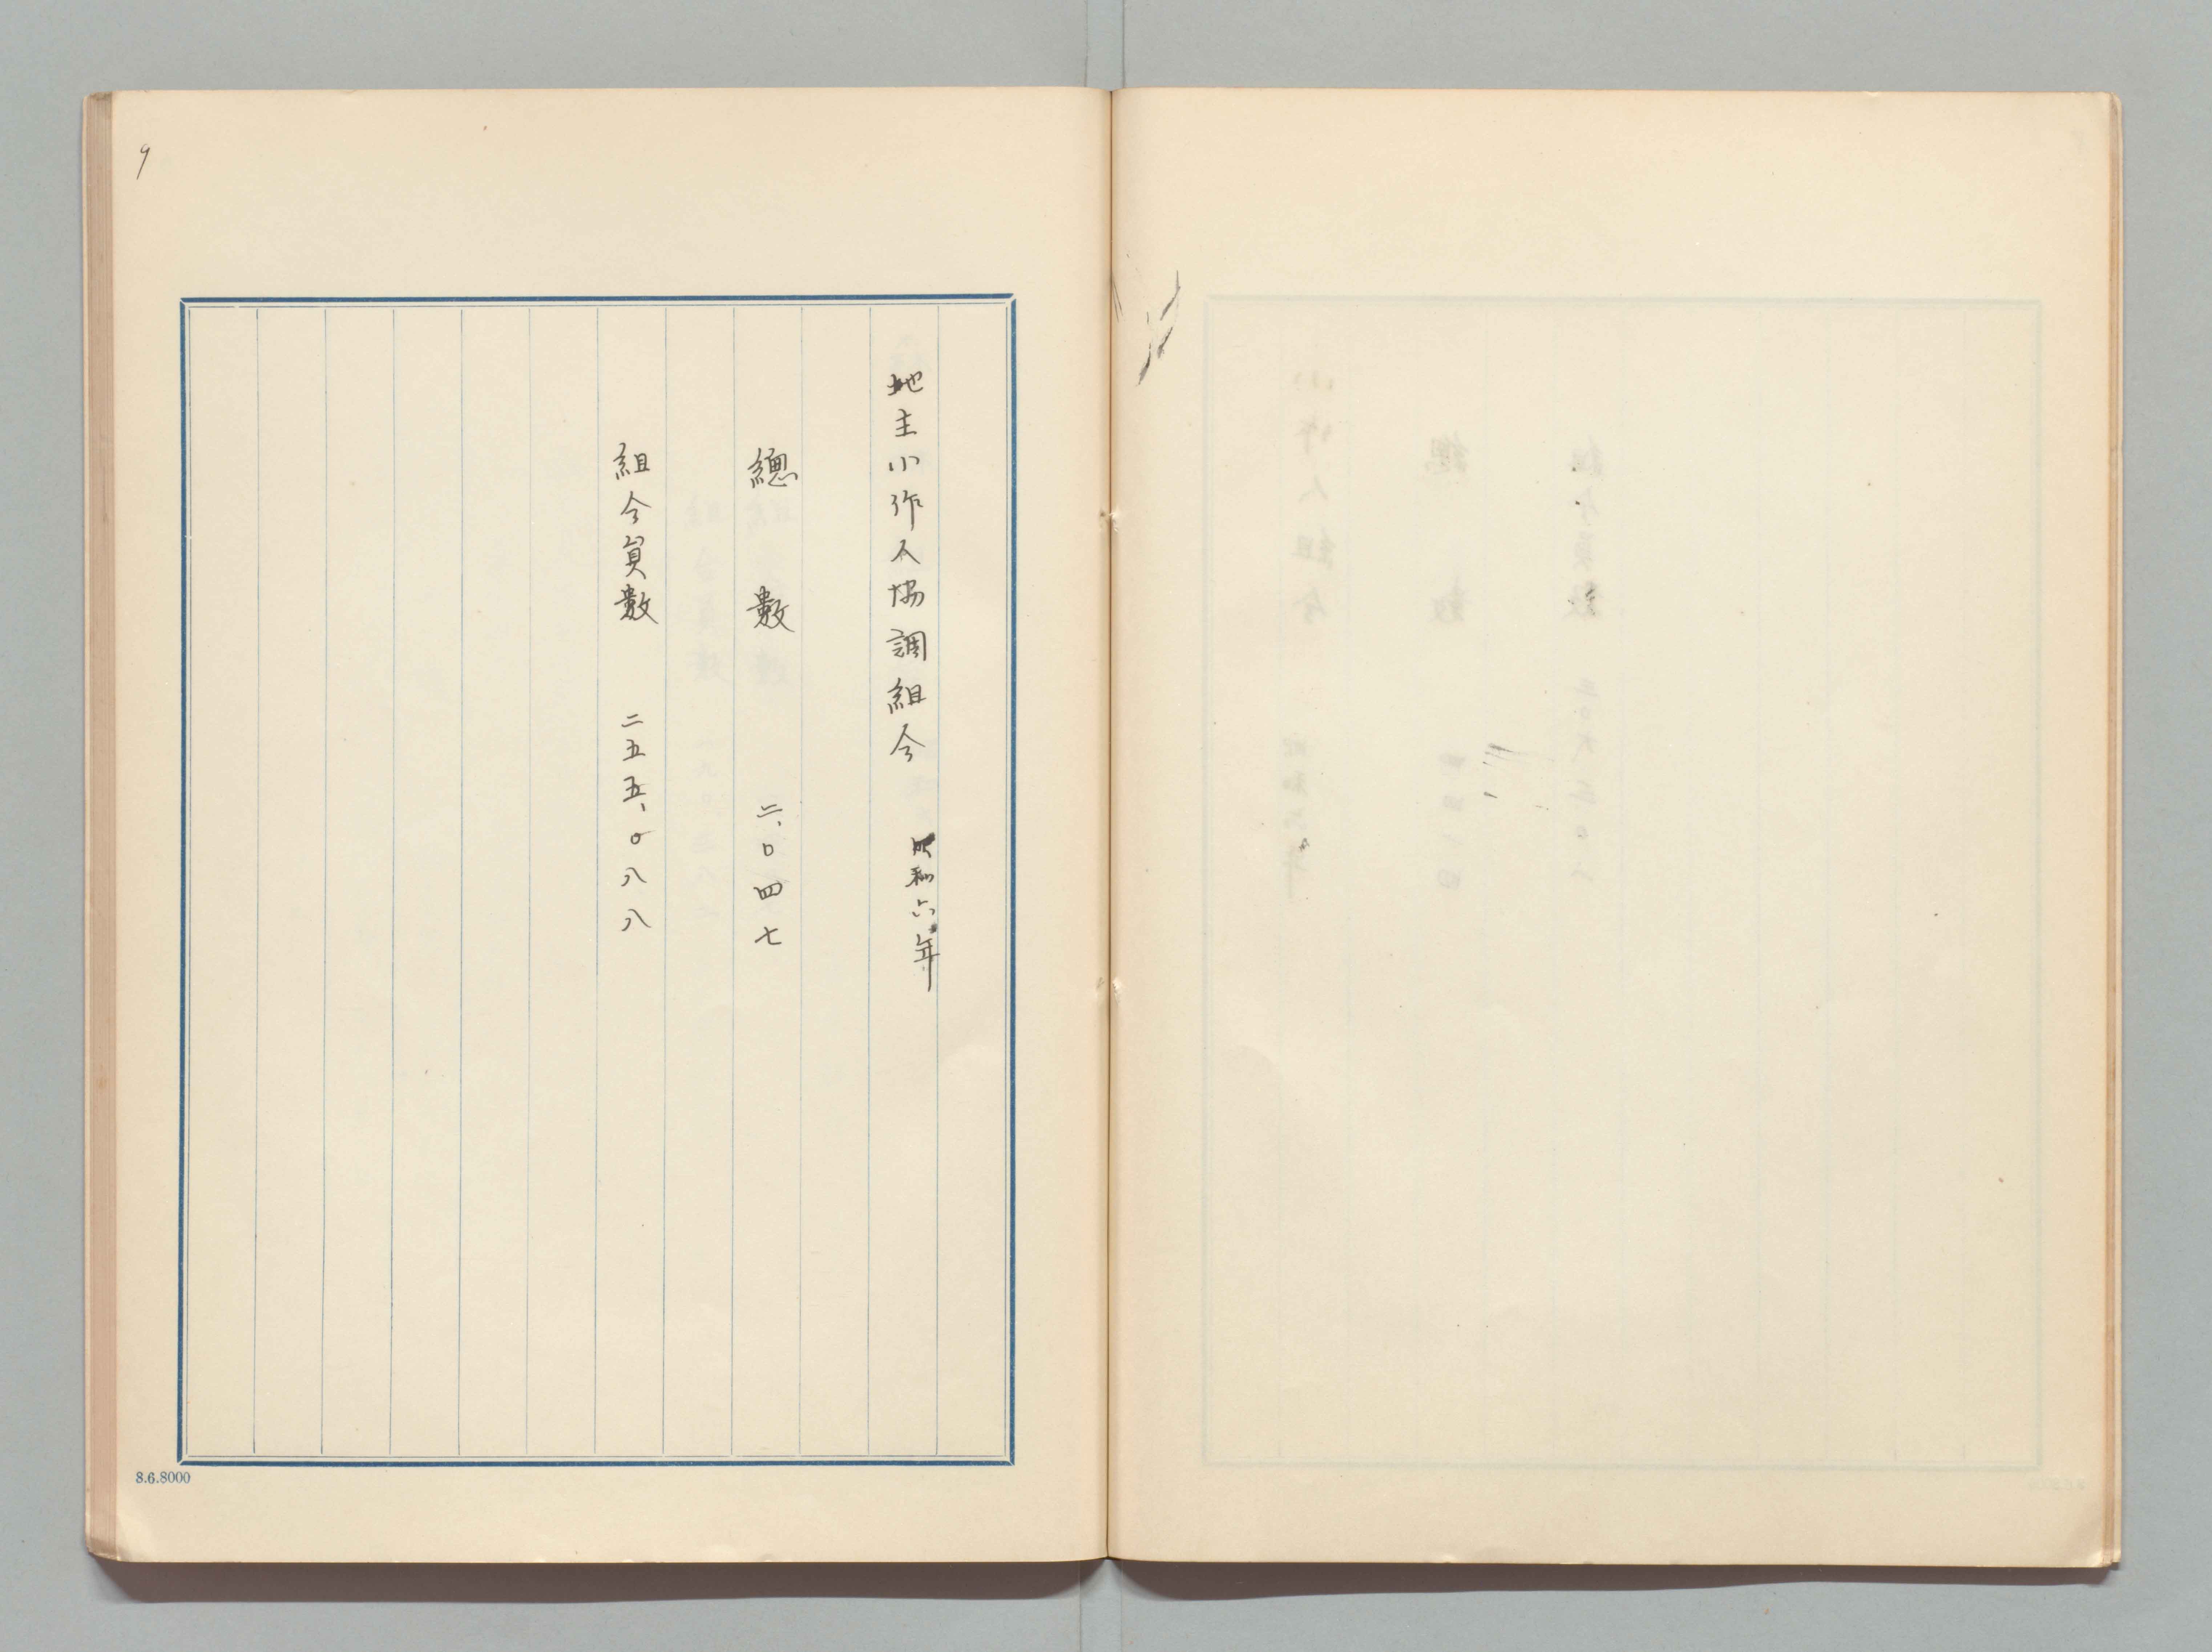 9
地主小作人協調組合 昭和六年
總數 二、〇四七
組合員數 二五五、〇八八
8.6.8000